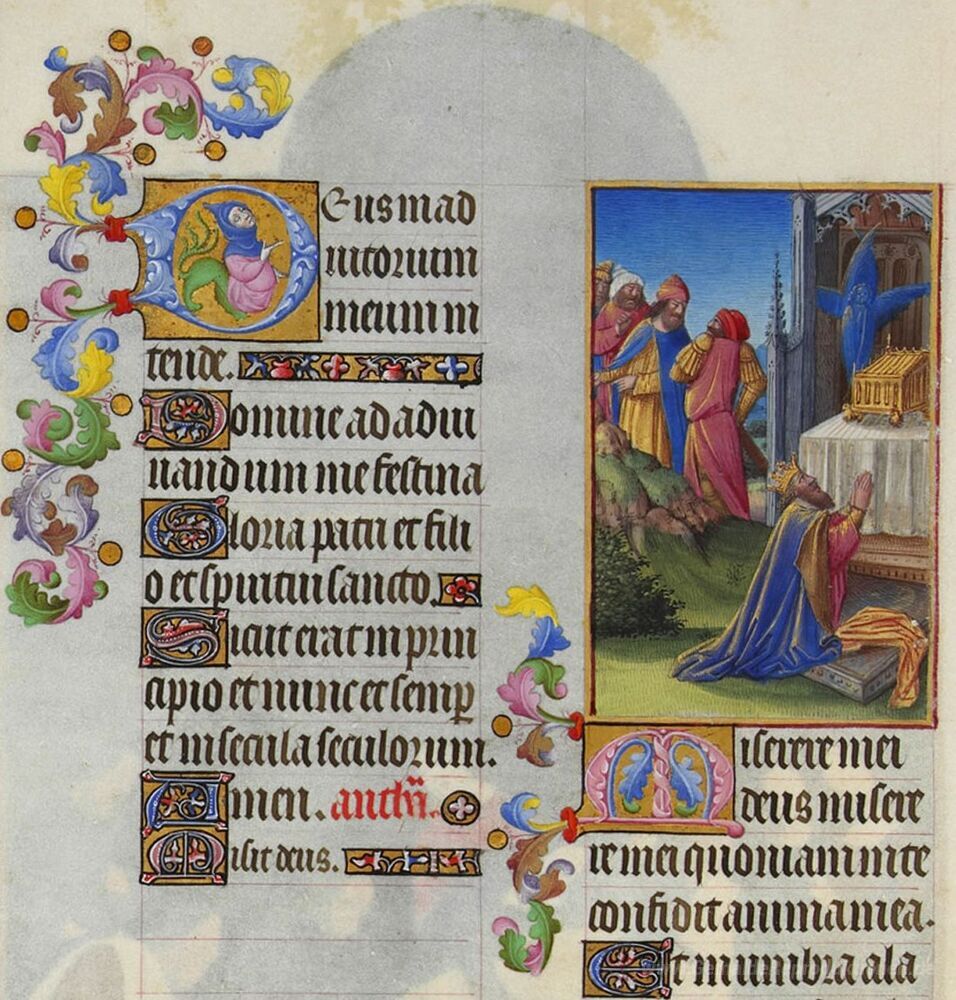 Deus in ad
iutorium
meum in
tende.
Domine ad adiu
uandum me festina
Gloria patri et fili
o et spiritui sancto.
Sicut erat in prin
cipio et nunc et semp
et in secula seculorum.
Amen. anth̄.
Misit deus.
Miserere mei
deus misere
re mei quoniam in te
confidit anima mea.
Et in umbra ala